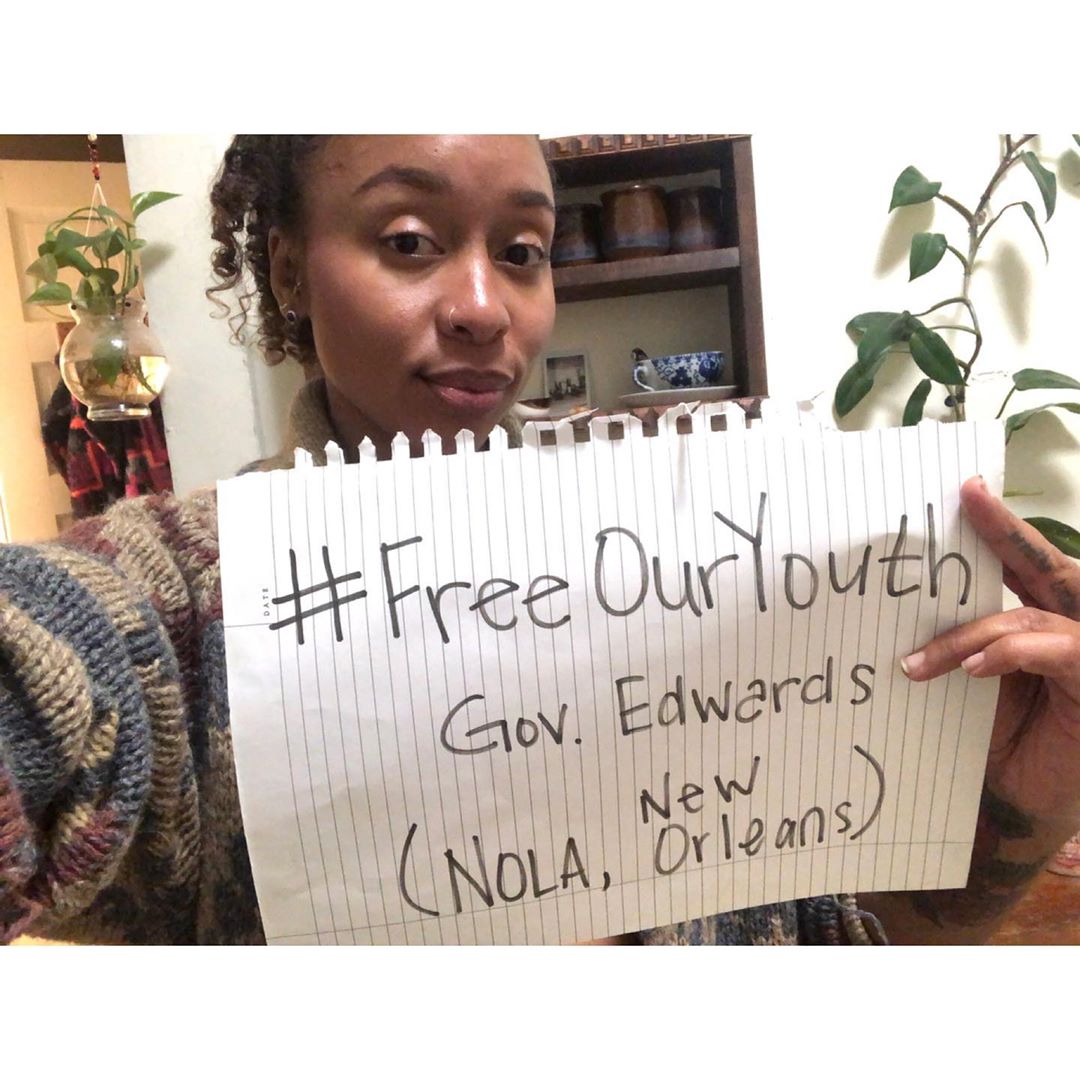 DATE
#FreeOurYouth
Gov. Edwards
(NOLA, New
Orleans)